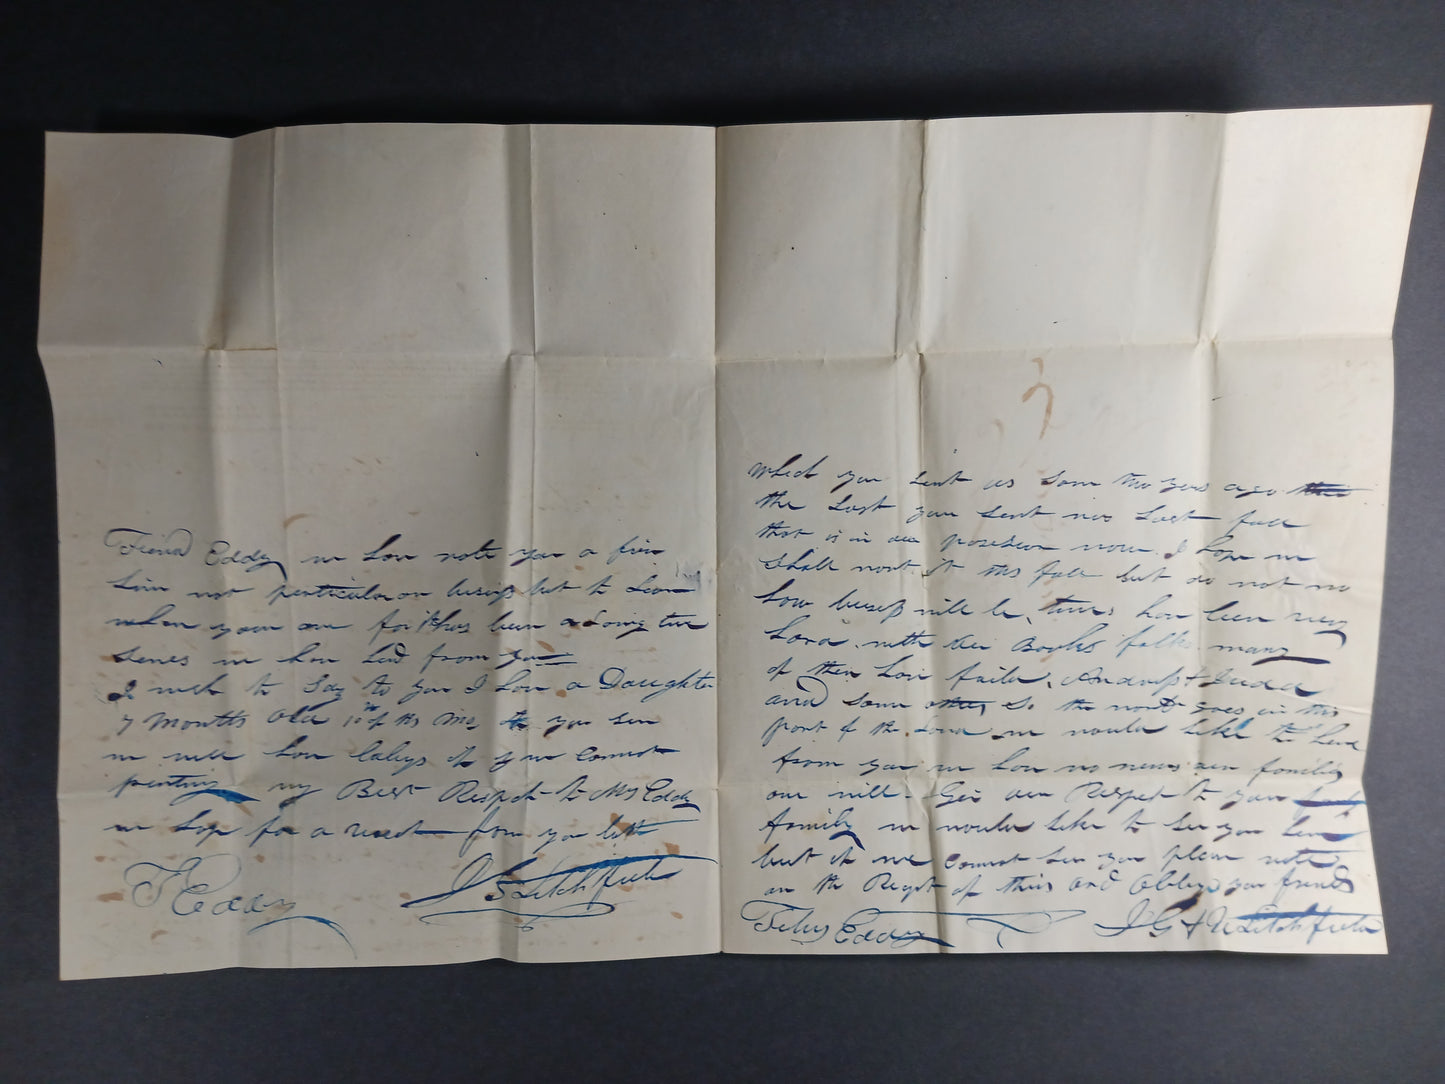 Friend Eddy we have note you a few
Lins not perticular on buisness but to Learn
whare your are for it has been a Long time
sines we have herd from you
I wish to Say to you I have a Daughter
7 Months old 10th of this Mo, you see
we will have babys if you cannot
my Best Respect to Mrs Eddy
we hope for a visit from you both
T Eddy J S Litchfield
which you sent us som two years ago
the Last you sent was Last fall
that is in our posesion now. I hope we
Shall want It this fall but do not no
how buisness will be, times have been very
hard with our Books folks many
of them have faild, Andrus & Judd
and some others So the world goes in this
part of the Land we would Like to here
from you we have no news our familys
are well. Give our Respect to your
family we would Like to see you here
but if we cannot see you please write
on the Recpt of this and oblige your friends
Eddy J G & U Litchfield